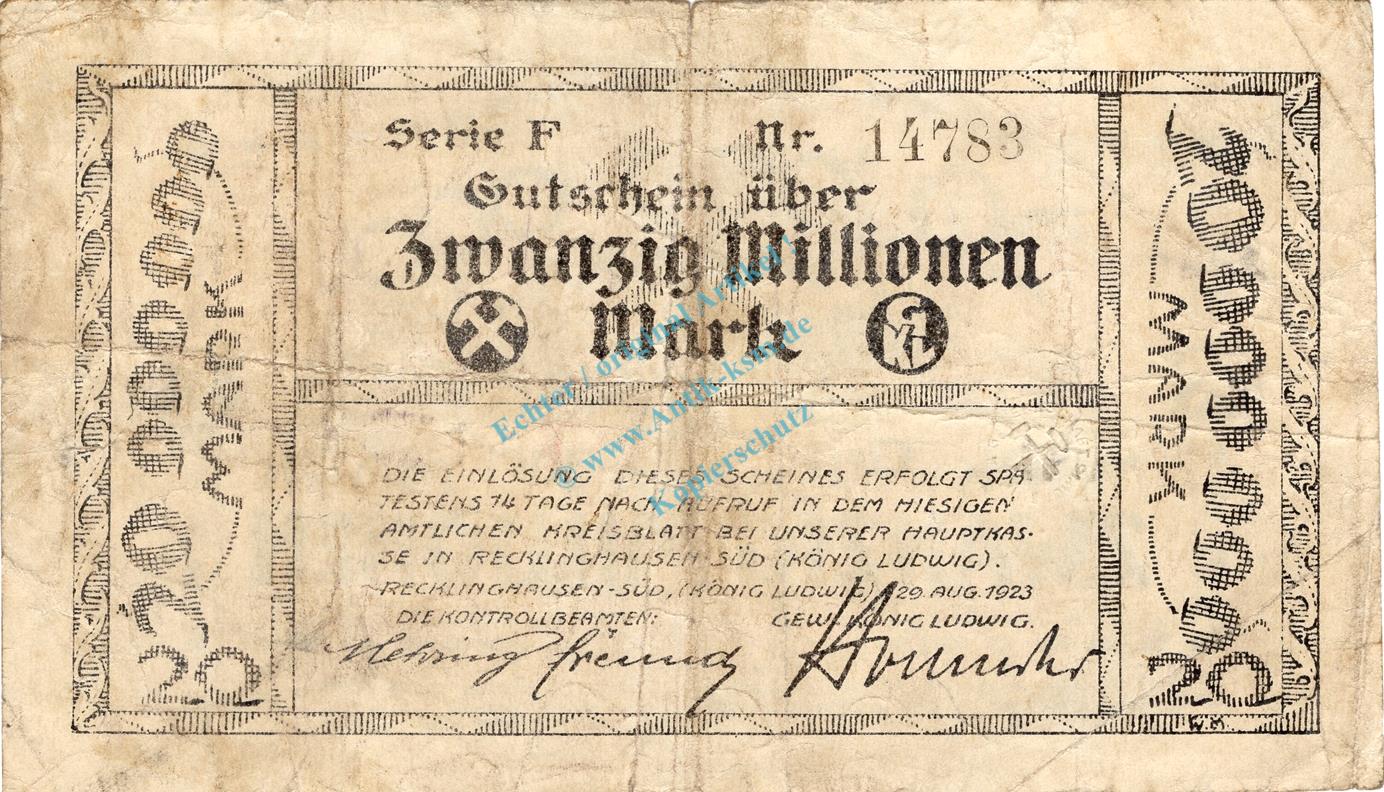 Serie F Nr. 14783
Gutschein über
Zwanzig Millionen
Mark
GKL
20 000 000
MARK
20 000 000
MARK
DIE EINLÖSUNG DIESES SCHEINES ERFOLGT SPÄ
TESTENS 14 TAGE NACH AUFRUF IN DEM HIESIGEN
AMTLICHEN KREISBLATT BEI UNSERER HAUPTKAS-
SE IN RECKLINGHAUSEN SÜD (KÖNIG LUDWIG).
RECKLINGHAUSEN-SÜD, (KÖNIG LUDWIG) 29. AUG. 1923
DIE KONTROLLBEAMTEN: GEW. KÖNIG LUDWIG.
Echter / original Artikel !
© www.Antik-ksm.de
Kopierschutz